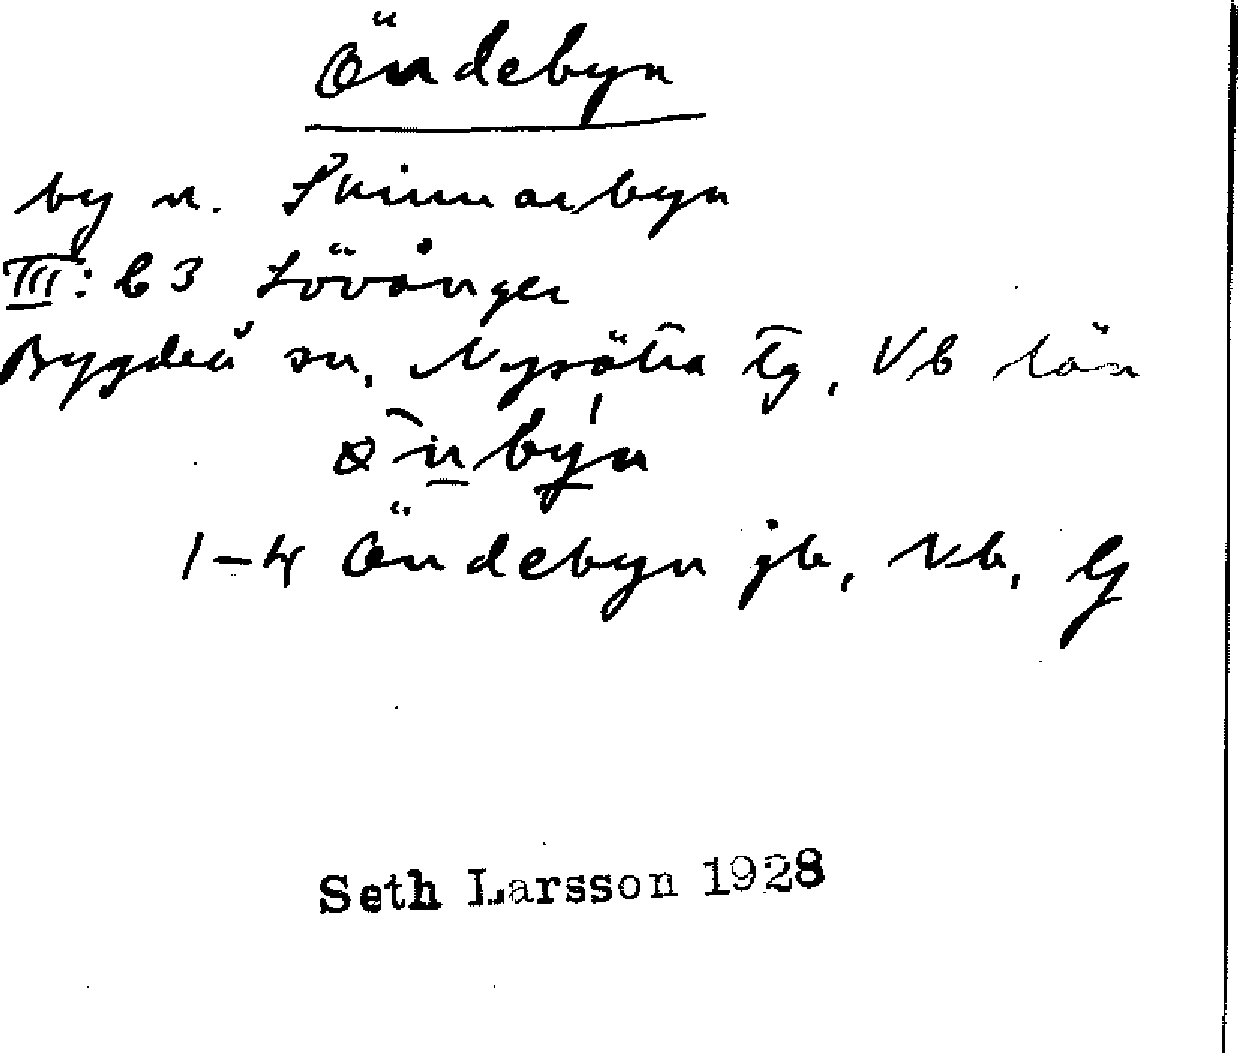 Öndebyn
by n. Skinnarbyn
III: b 3 Lövånger
Bygdeå sn, Nysätra tg, Vb län
1-4 Öndebyn jb, Vb,
Seth Larsson 1928